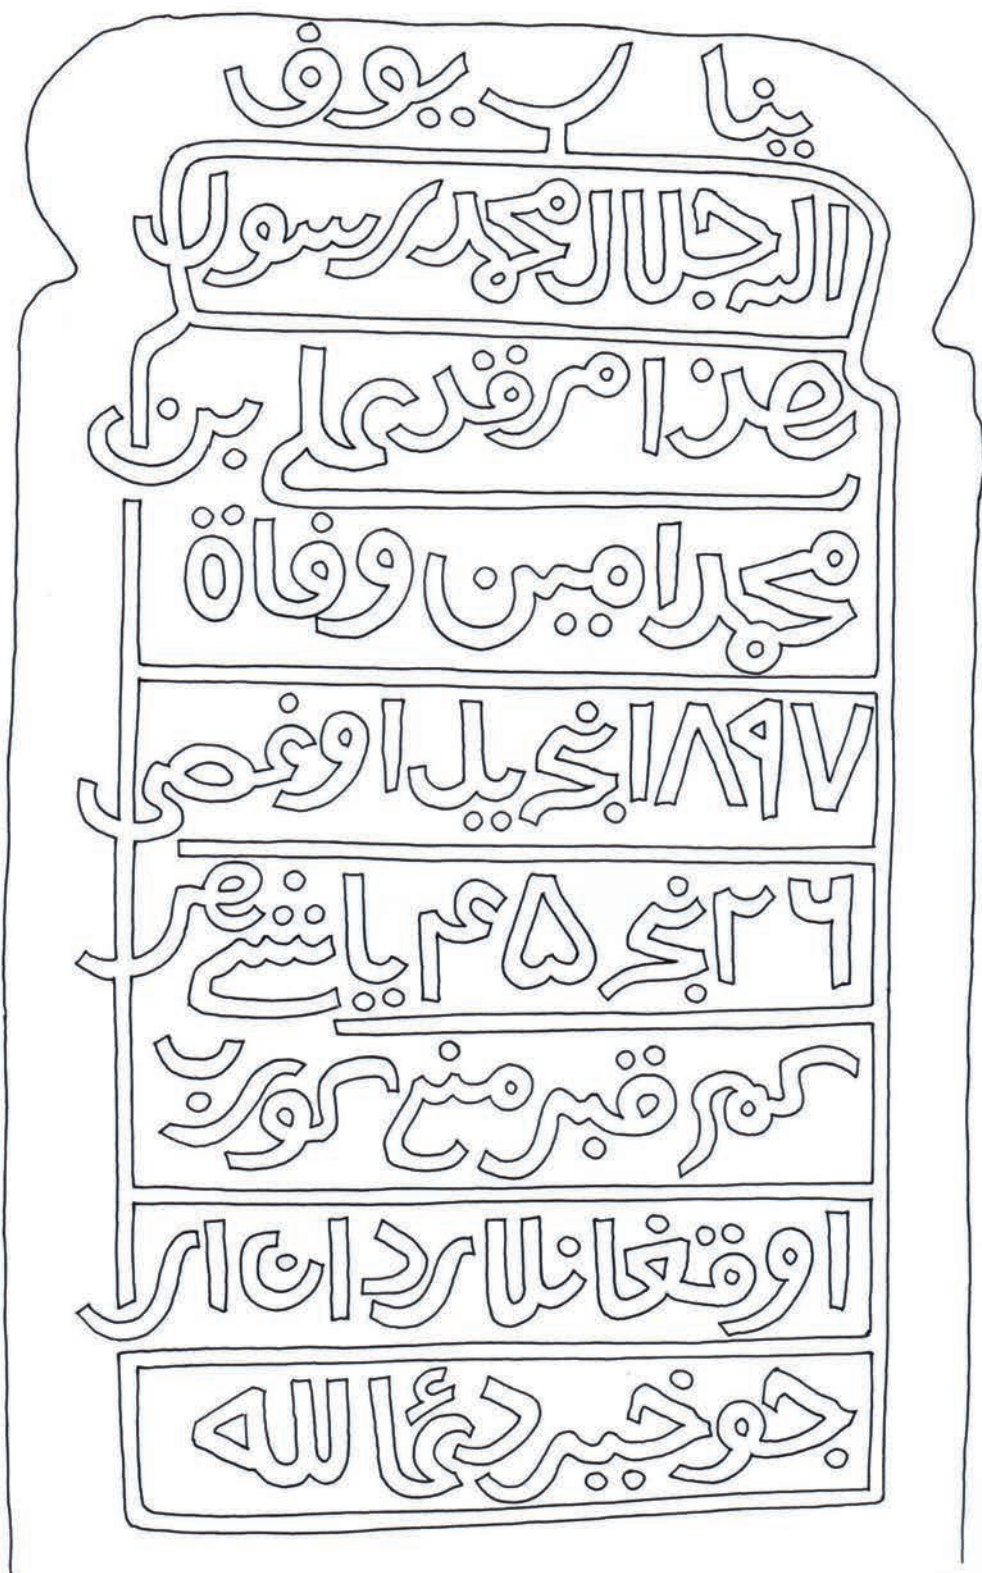 ينا ب يوف
الر جلال محمد رسول
هذا مرقد على بن
محمد امين وفاة
١٨٩٧ نجى يلدا وغصى
٢٦ نجر ۴۵ ياشے هر
كمر قبر منے كورب
اوقغانلاردان ار
جو خير دعا الله